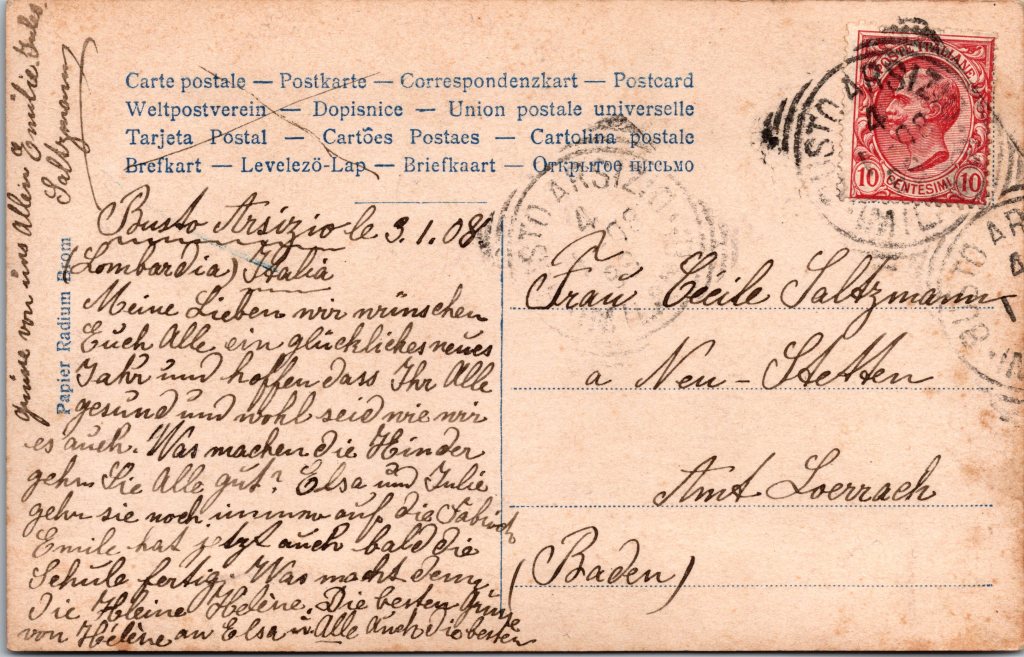 Carte postale — Postkarte — Correspondenzkart — Postcard
Weltpostverein — Dopisnice — Union postale universelle
Tarjeta Postal — Cartões Postaes — Cartolina postale
Brefkart — Levelező-Lap — Briefkaart — Открытое письмо
Papier Radium Brom
POSTE ITALIANE
10 CENTESIMI 10
STO ARSIZIO
4
08
STO ARSIZIO
4
08
Busto Arsizio le 3.1.08
(Lombardia) Italia
Meine Lieben wir wünschen
Euch Alle ein glückliches neues
Jahr und hoffen dass Ihr Alle
gesund und wohl seid wie wir
es auch. Was machen die Kinder
gehn Sie Alle gut? Elsa und Julie
gehn sie noch immer auf die Fabrick
Emile hat jetzt auch bald die
Schule fertig. Was macht denn
die Kleine Helène. Die besten Grüsse
von Hélène an Elsa u Alle Auch die besten
Grüsse von uns Allen Emilie Jules
Saltzmann
Frau Cécile Saltzmann
a Neu-Stetten
Amt Loerrach
(Baden)